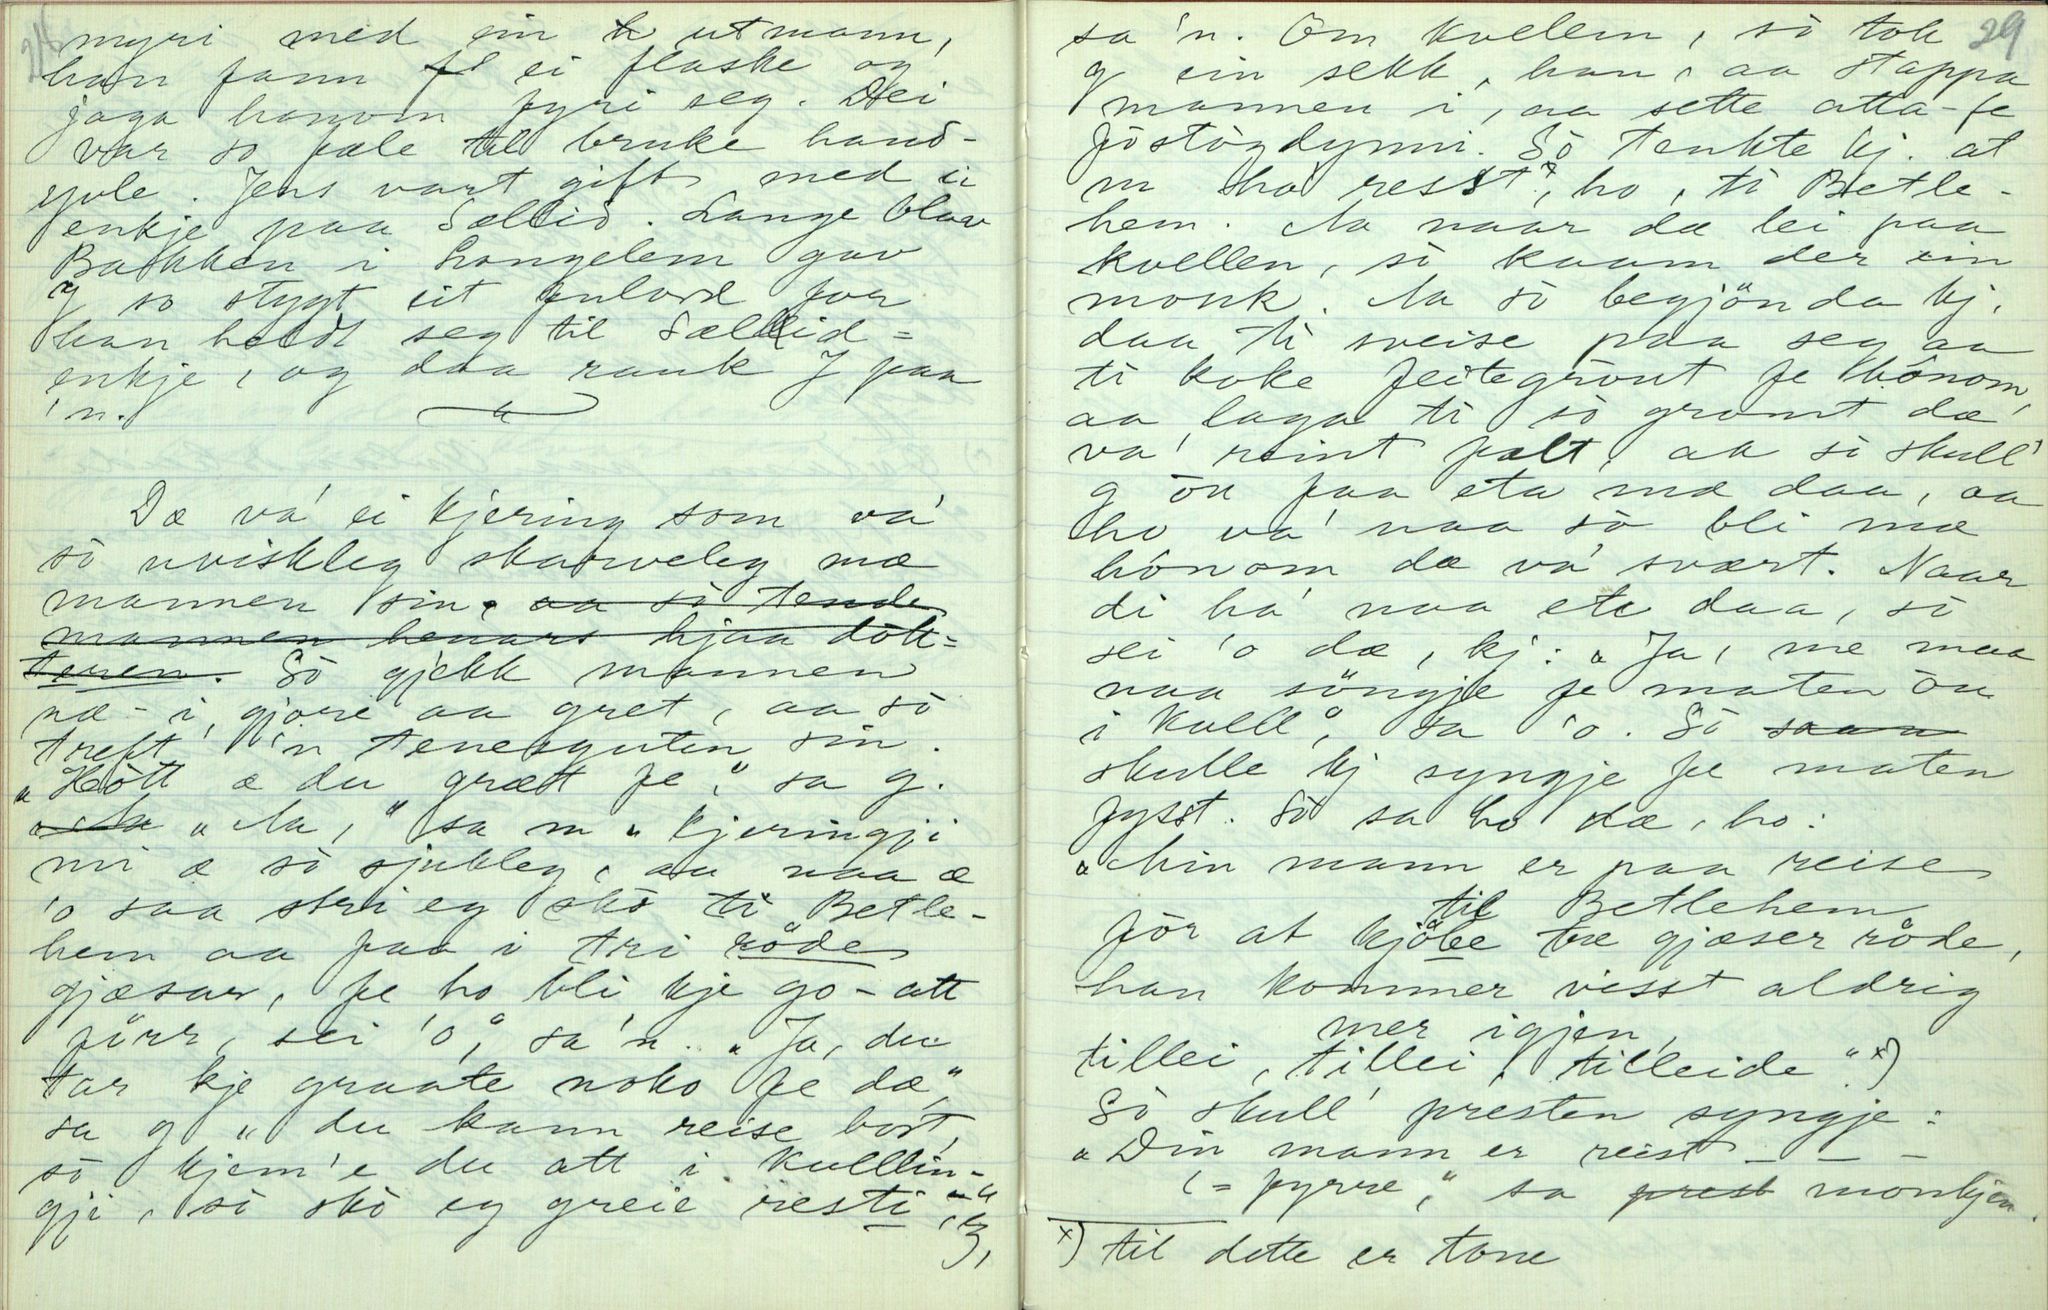 myri med ein k utmann,
han fann fl ei flaske og
jaga honom fyri seg. Dei
var so fæle til bruke hand-
yvle. Jens vart gift med ei
enkje paa Sællid. Lange Olav
Bakken i Longelem gav
J so stygt eit ɟulord for
han heldt seg til Sællid=
enkje, og daa rauk J paa
'n.
Dæ va' ei kjering som va'
sò uviskleg skarveleg mæ
mannen sin, aa sò tende
mannen henars hjaa dòtt=
teren. Sò gjekk mannen
næ-i gjore aa gret, aa sò
treft' 'n tenesguten sin.
„Hòtt æ du græt fe", sa g.
„Aa „Aa," sa m „kjeringji
mi æ sò sjukleg, aa naa æ
'o saa stri eg skò ti Betle-
hem aa faa i tri röde
gjæsar, fe ho bli kje go-att
fürr, sei 'o", sa 'n. „Ja, du
tar kje graate noko fe dæ,"
sa g „du kann reise bort,
sò kjem'e du att i kvelln-
gji, sò skò eg greie resti",
29
sa 'n. Om kvellen, sò tok
g ein sekk, han, aa stappa
mannen i, aa sette atta-fe
föstögdynni. Sò tenkte kj. at
m ha resst, ho, ti Betle-
hem. Aa naar dæ lei paa
kvellen, sò kaam der ein
monk. Aa sò begjönda kj.
daa ti sveise paa seg aa
ti koke feitegrövt fe hònom,
aa laga ti sò gromt dæ
va' reint fælt, aa sò skull'
g òu faa eta mæ daa, aa
ho va' naa sò bli mæ
hònom dæ va' svært. Naar
di ha' naa ete daa, sò
sei 'o dæ, kj: „Ja, me maa
naa söngje fe maten òu
i kvell", sa 'o. Sò saan
skulle kj syngje fe maten
fysst. Sò sa ho dæ, ho:
„Min mann er paa reise
til Betlehem
för at kjöbe tre gjæser röde,
han kommer visst aldrig
mer igjen,
tillei, tillei, tilleide" x)
Sò skull' presten syngje:
„Din mann er reist – – –
(= fyrre," sa prest monkjen.
x) til dette er tone